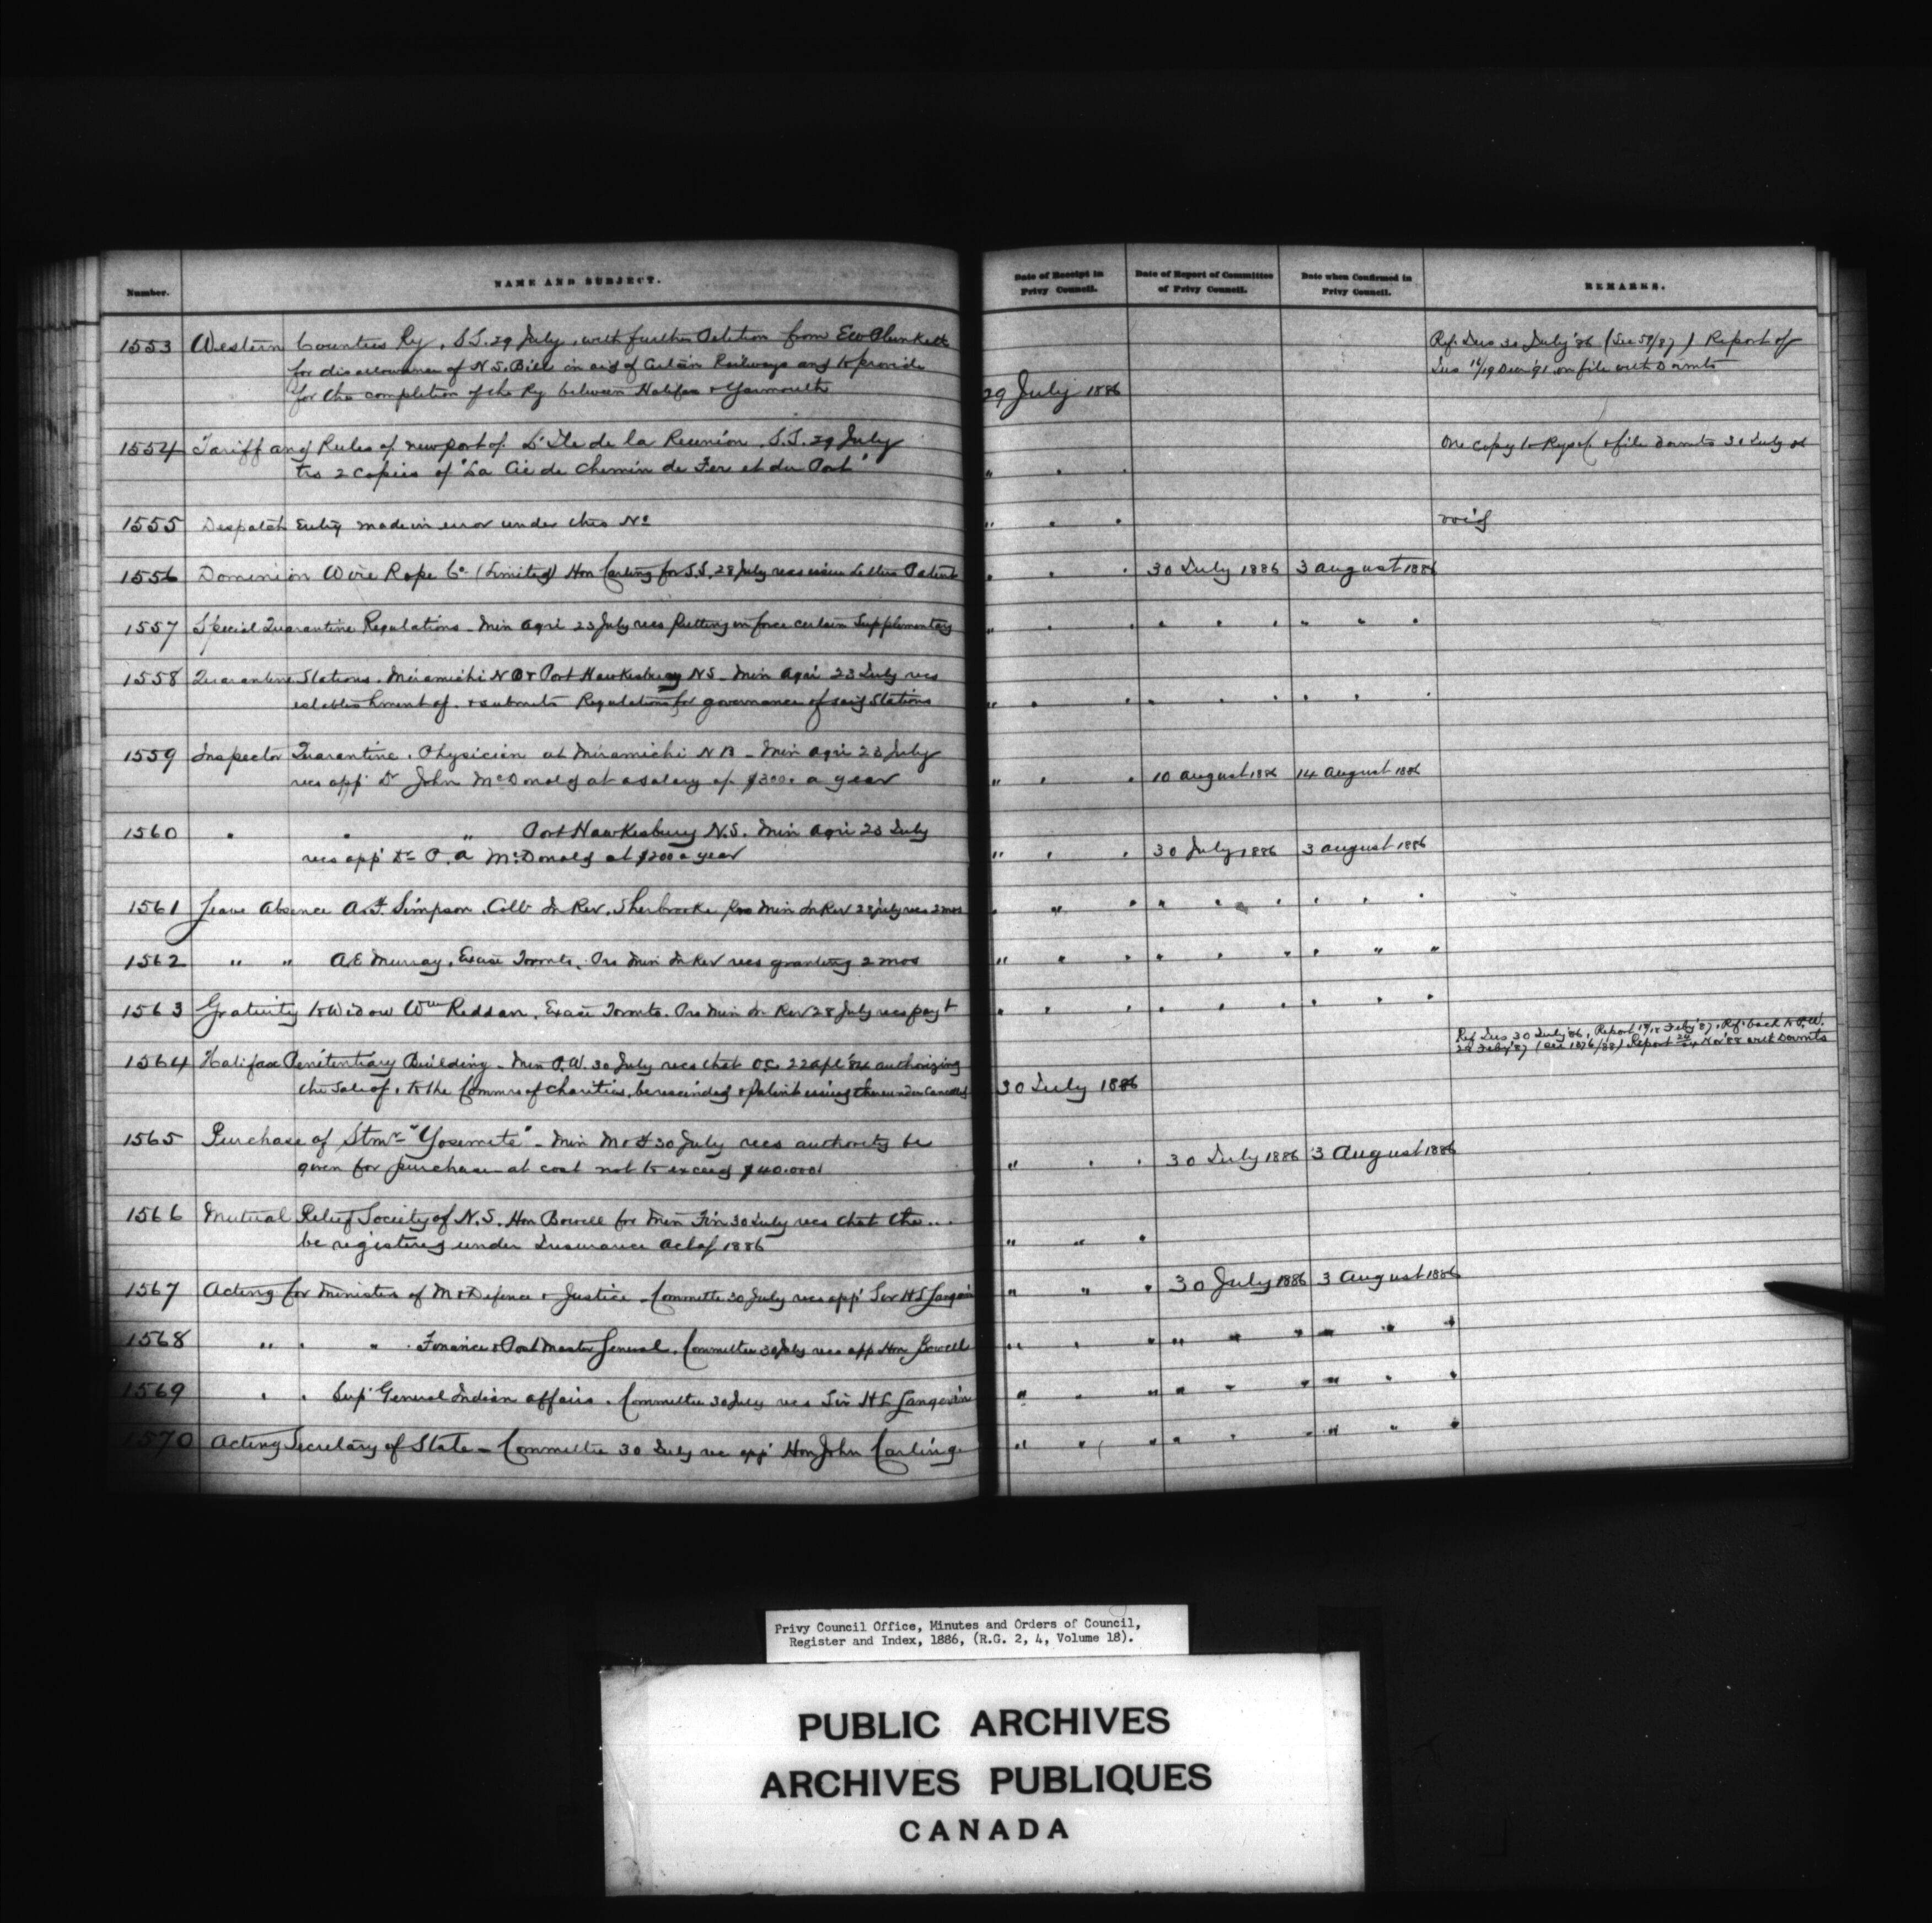 Number.
NAME AND SUBJECT.
Date of Receipt in Privy Council.
Date of Report of Committee of Privy Council.
Date when Confirmed in Privy Council.
REMARKS.
1553 Western Counties Ry. S.S. 29 July, with further Petition from Ew Plunkett
for disallowance of N.S. Bill in aid of Certain Railways and to provide
for the completion of the Ry between Halifax & Yarmouth
29 July 1886
Ref. Jus 30 July '86 (See 58/87) Report of
Jus 16/19 Decr '91 on file with Dormts
1554 Tariff and Rules of new port of L'Ile de la Reunion. S.S. 29 July
trs 2 copies of "La Cie de Chemin de Fer et du Port"
" " "
One copy to Rys & file Dormts 30 July 86
1555 Despatch Entry made in error under this No
" " "
void
1556 Dominion Wire Rope Co. (Limited) Hon Carling for S.S. 28 July recs issue Letters Patent
" " " 30 July 1886 3 August 1886
1557 Special Quarantine Regulations - Min Agri 23 July recs putting in force certain Supplementary
" " " " " " " " "
1558 Quarantine Stations. Miramichi N B & Port Hawkesbury N S - Min Agri 23 July recs
establishment of. & submits Regulations for governance of said Stations
" " " " " " " " "
1559 Inspector Quarantine. Physician at Miramichi N B - Min Agri 23 July
recs app' Dr John McDonald at a salary of $300. a year
" " " 10 August 1886 14 August 1886
1560 " " " Port Hawkesbury N.S. Min Agri 23 July
recs app' Dr P. A McDonald at $200 a year
" " " 30 July 1886 3 August 1886
1561 Leave Absence A.F. Simpson. Coll In Rev. Sherbrooke Pro Min In Rev 28 July recs 2 mos
" " " " " " " " "
1562 " " A.E. Murray. Excise Toronto. Pro Min In Rev recs granting 2 mos
" " " " " " " " "
1563 Gratuity to Widow Wm Reddan. Excise Toronto. Pro Min In Rev 28 July recs payt
" " " " " " " " "
1564 Halifax Penitentiary Building - Min P.W. 30 July recs that O.C. 22 Apl '84 authorizing
the Sale of, to the Commrs of Charities, be rescinded & Patent issued thereunder Cancelled
30 July 1886
Ref Jus 30 July '86, Report 17/18 Feby '87, Ref. back to P.W.
23 Feby '87 (See 1876/88) Report Nov '88 with Dormts
1565 Purchase of Stmr "Yosemite" - Min M & F 30 July recs authority be
given for purchase at cost not to exceed $40.000
" " " 30 July 1886 3 August 1886
1566 Mutual Relief Society of N.S. Hon Bowell for Min Fin 30 July recs that the...
be registered under Insurance Act of 1886
" " "
1567 Acting for Minister of M & Defence & Justice - Committee 30 July recs app' Sir H L Langevin
" " " 30 July 1886 3 August 1886
1568 " " " Finance & Post Master General. Committee 30 July recs app Hon Bowell
" " " " " " " " "
1569 " " Sup' General Indian Affairs. Committee 30 July recs Sir H L Langevin
" " " " " " " " "
1570 Acting Secretary of State - Committee 30 July rec app' Hon John Carling
" " " " " " " " "
Privy Council Office, Minutes and Orders of Council,
Register and Index, 1886, (R.G. 2, 4, Volume 18).
PUBLIC ARCHIVES
ARCHIVES PUBLIQUES
CANADA